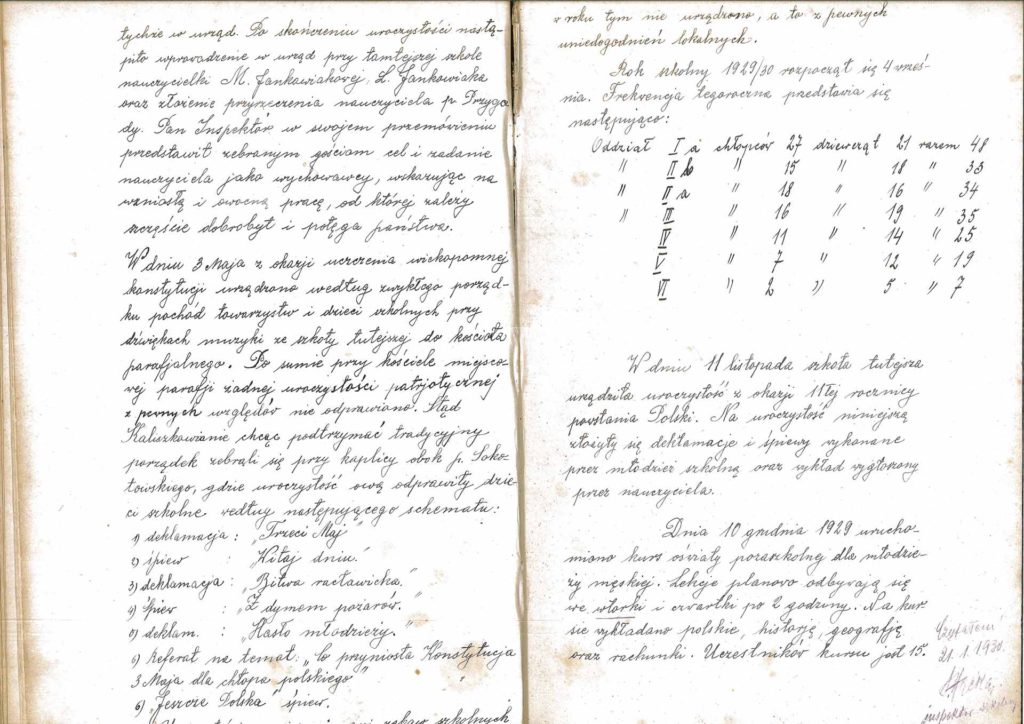 tychże w urząd. Po skończeniu uroczystości nastą-
piło wprowadzenie w urząd przy tamtejszej szkole
nauczycielki M. Jankowiakovej, L. Jankowiaka
oraz złożenie przyrzeczenia nauczyciela p. Przygo
dy. Pan Inspektór w swojem przemówieniu
przedstawił zebranym gościom cel i zadanie
nauczyciela jako wychowawcy, wskazując na
wzniosłą i owocną pracę, od której zależy
szczęście dobrobyt i potęga państwa.
W dniu 3 Maja z okazji uczczenia wiekopomnej
konstytucji urządzono według zwykłego porząd-
ku pochód towarzystw i dzieci szkolnych przy
dźwiękach muzyki ze szkoły tutejszej do kościoła
parafjalnego. Po sumie przy kościele miejsco-
vej parafji żadnej uroczystości patrjotycznej
z pewnych względów nie odprawiono. Stąd
Kaliszkowianie chcąc podtrzymać tradycyjny
porządek zebrali się przy kaplicy obok p. Soko-
łowskiego, gdzie uroczystość ową odprawiły dzie-
ci szkolne według następującego schematu:
1) deklamacja: „Trzeci Maj"
2) śpiew „Witaj dniu."
3) deklamacja: „Bitwa racławicka."
4) śpiew : „Z dymem pożarów."
5) deklam. : „Hasło młodzieży."
6) Referat na temat: „Co przyniosła Konstytucja
3 Maja dla chłopa polskiego"
6) „Jeszcze Polska" śpiew.
szkolnych
w roku tym nie urządzono, a to z pewnych
uniedogodnień lokalnych.
Rok szkolny 1929/30 rozpoczął się 4 wrześ-
nia. Frekvencja tegoroczna przedstavia się
następująco:
Oddział I a chłopców 27 dziewcząt 21 razem 48
" II b " 15 " 18 " 33
" II a " 18 " 16 " 34
" III " 16 " 19 " 35
IV " 11 " 14 " 25
V " 7 " 12 " 19
VI " 2 " 5 " 7
W dniu 11 listopada szkoła tutejsza
urządziła uroczystość z okazji 11tej rocznicy
powstania Polski. Na uroczystość niniejszą
złożyły się deklamacje i śpiewy wykonane
przez młodzież szkolną oraz wykład wygłoszony
przez nauczyciela.
Dnia 10 grudnia 1929 urucho-
miono kurs oświaty pozaszkolnej dla młodzie-
ży męskiej. Lekcje planowo odbywają się
we wtorki i czwartki po 2 godziny. Na kur-
sie wykładano polskie, historję, geografję
oraz rachunki. Uczestników kursu jest 15.
Czytałem
21. 1. 1930.
inspektor szkolny